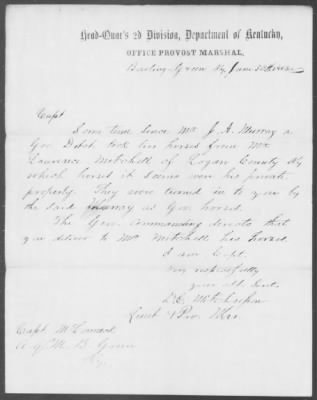 Head-Quar's 2d Division, Department of Kentucky,
OFFICE PROVOST MARSHAL,
Bowling-Green Ky June
Capt
Some time since Mr J. A. Murray a
Gov Detect. took two horses from Mr
Lawrence Mitchell of Logan County Ky
which horses it seems were his private
property. They were turned in to you by
the said Murray as Gov horses.
The Gen. commanding directs that
you deliver to Mr Mitchell his horses.
I am Capt.
Very respectfully
your obt Servt.
Lieut & Pro. Mar.
Capt.
A.Q.M. B. Green
Ky.